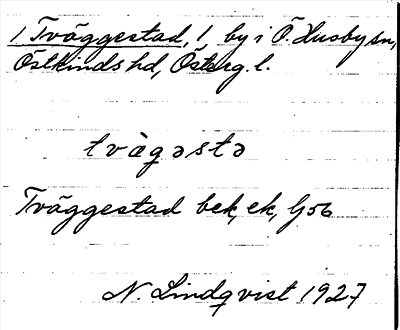 1 Tväggestad, 1 by i Ö. Husby sn,
Östkinds hd, Österg. l.
tvàgəstə
Tväggestad bek, ek, G56
N. Lindqvist 1927